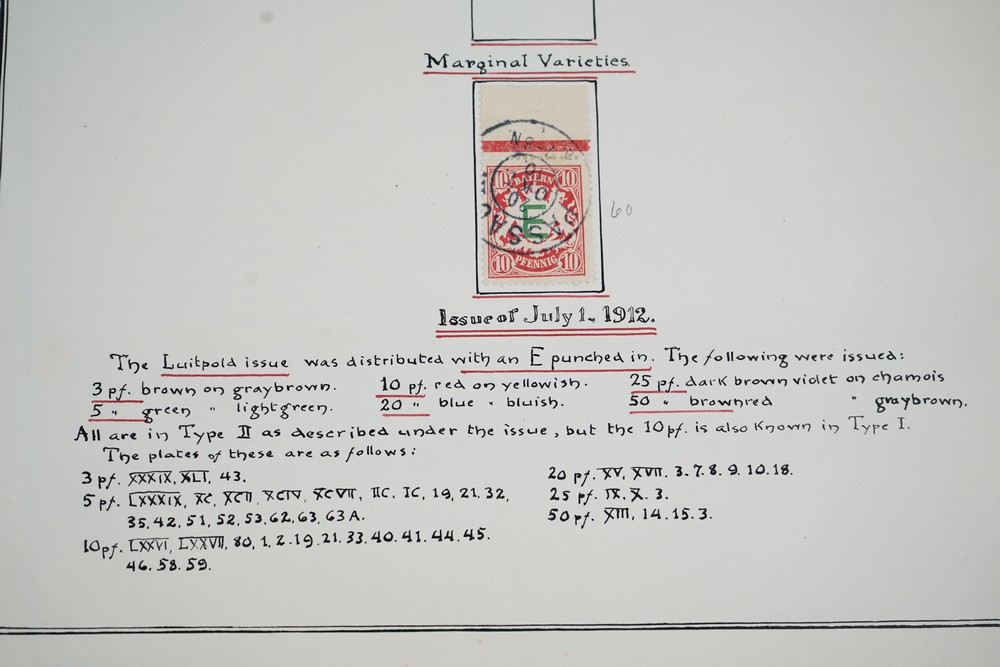 Marginal Varieties.
10 BAYERN 10
E
10 PFENNIG 10
60
Issue of July 1. 1912.
The Luitpold issue was distributed with an E punched in. The following were issued:
3 pf. brown on graybrown. 10 pf. red on yellowish. 25 pf. dark brown violet on chamois
5 " green " lightgreen. 20 " blue " bluish. 50 " brownred " graybrown.
All are in Type II as described under the issue, but the 10 pf. is also known in Type I.
The plates of these are as follows:
3 pf. XXXIX, XLI, 43.
5 pf. LXXXIX, XC, XCII, XCIV, XCVII, IIC, IC, 19, 21, 32,
35, 42, 51, 52, 53, 62, 63, 63 A.
10 pf. LXXVI, LXXVII, 80, 1, 2. 19. 21. 33. 40. 41. 44. 45.
46. 58. 59.
20 pf. XV, XVII. 3. 7. 8. 9. 10. 18.
25 pf. IX. X. 3.
50 pf. XIII, 14. 15. 3.